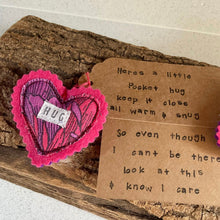 HUG
Heres a little
Pocket hug
keep it close
all warm & snug
So even though
I cant be there
look at this
& know I care